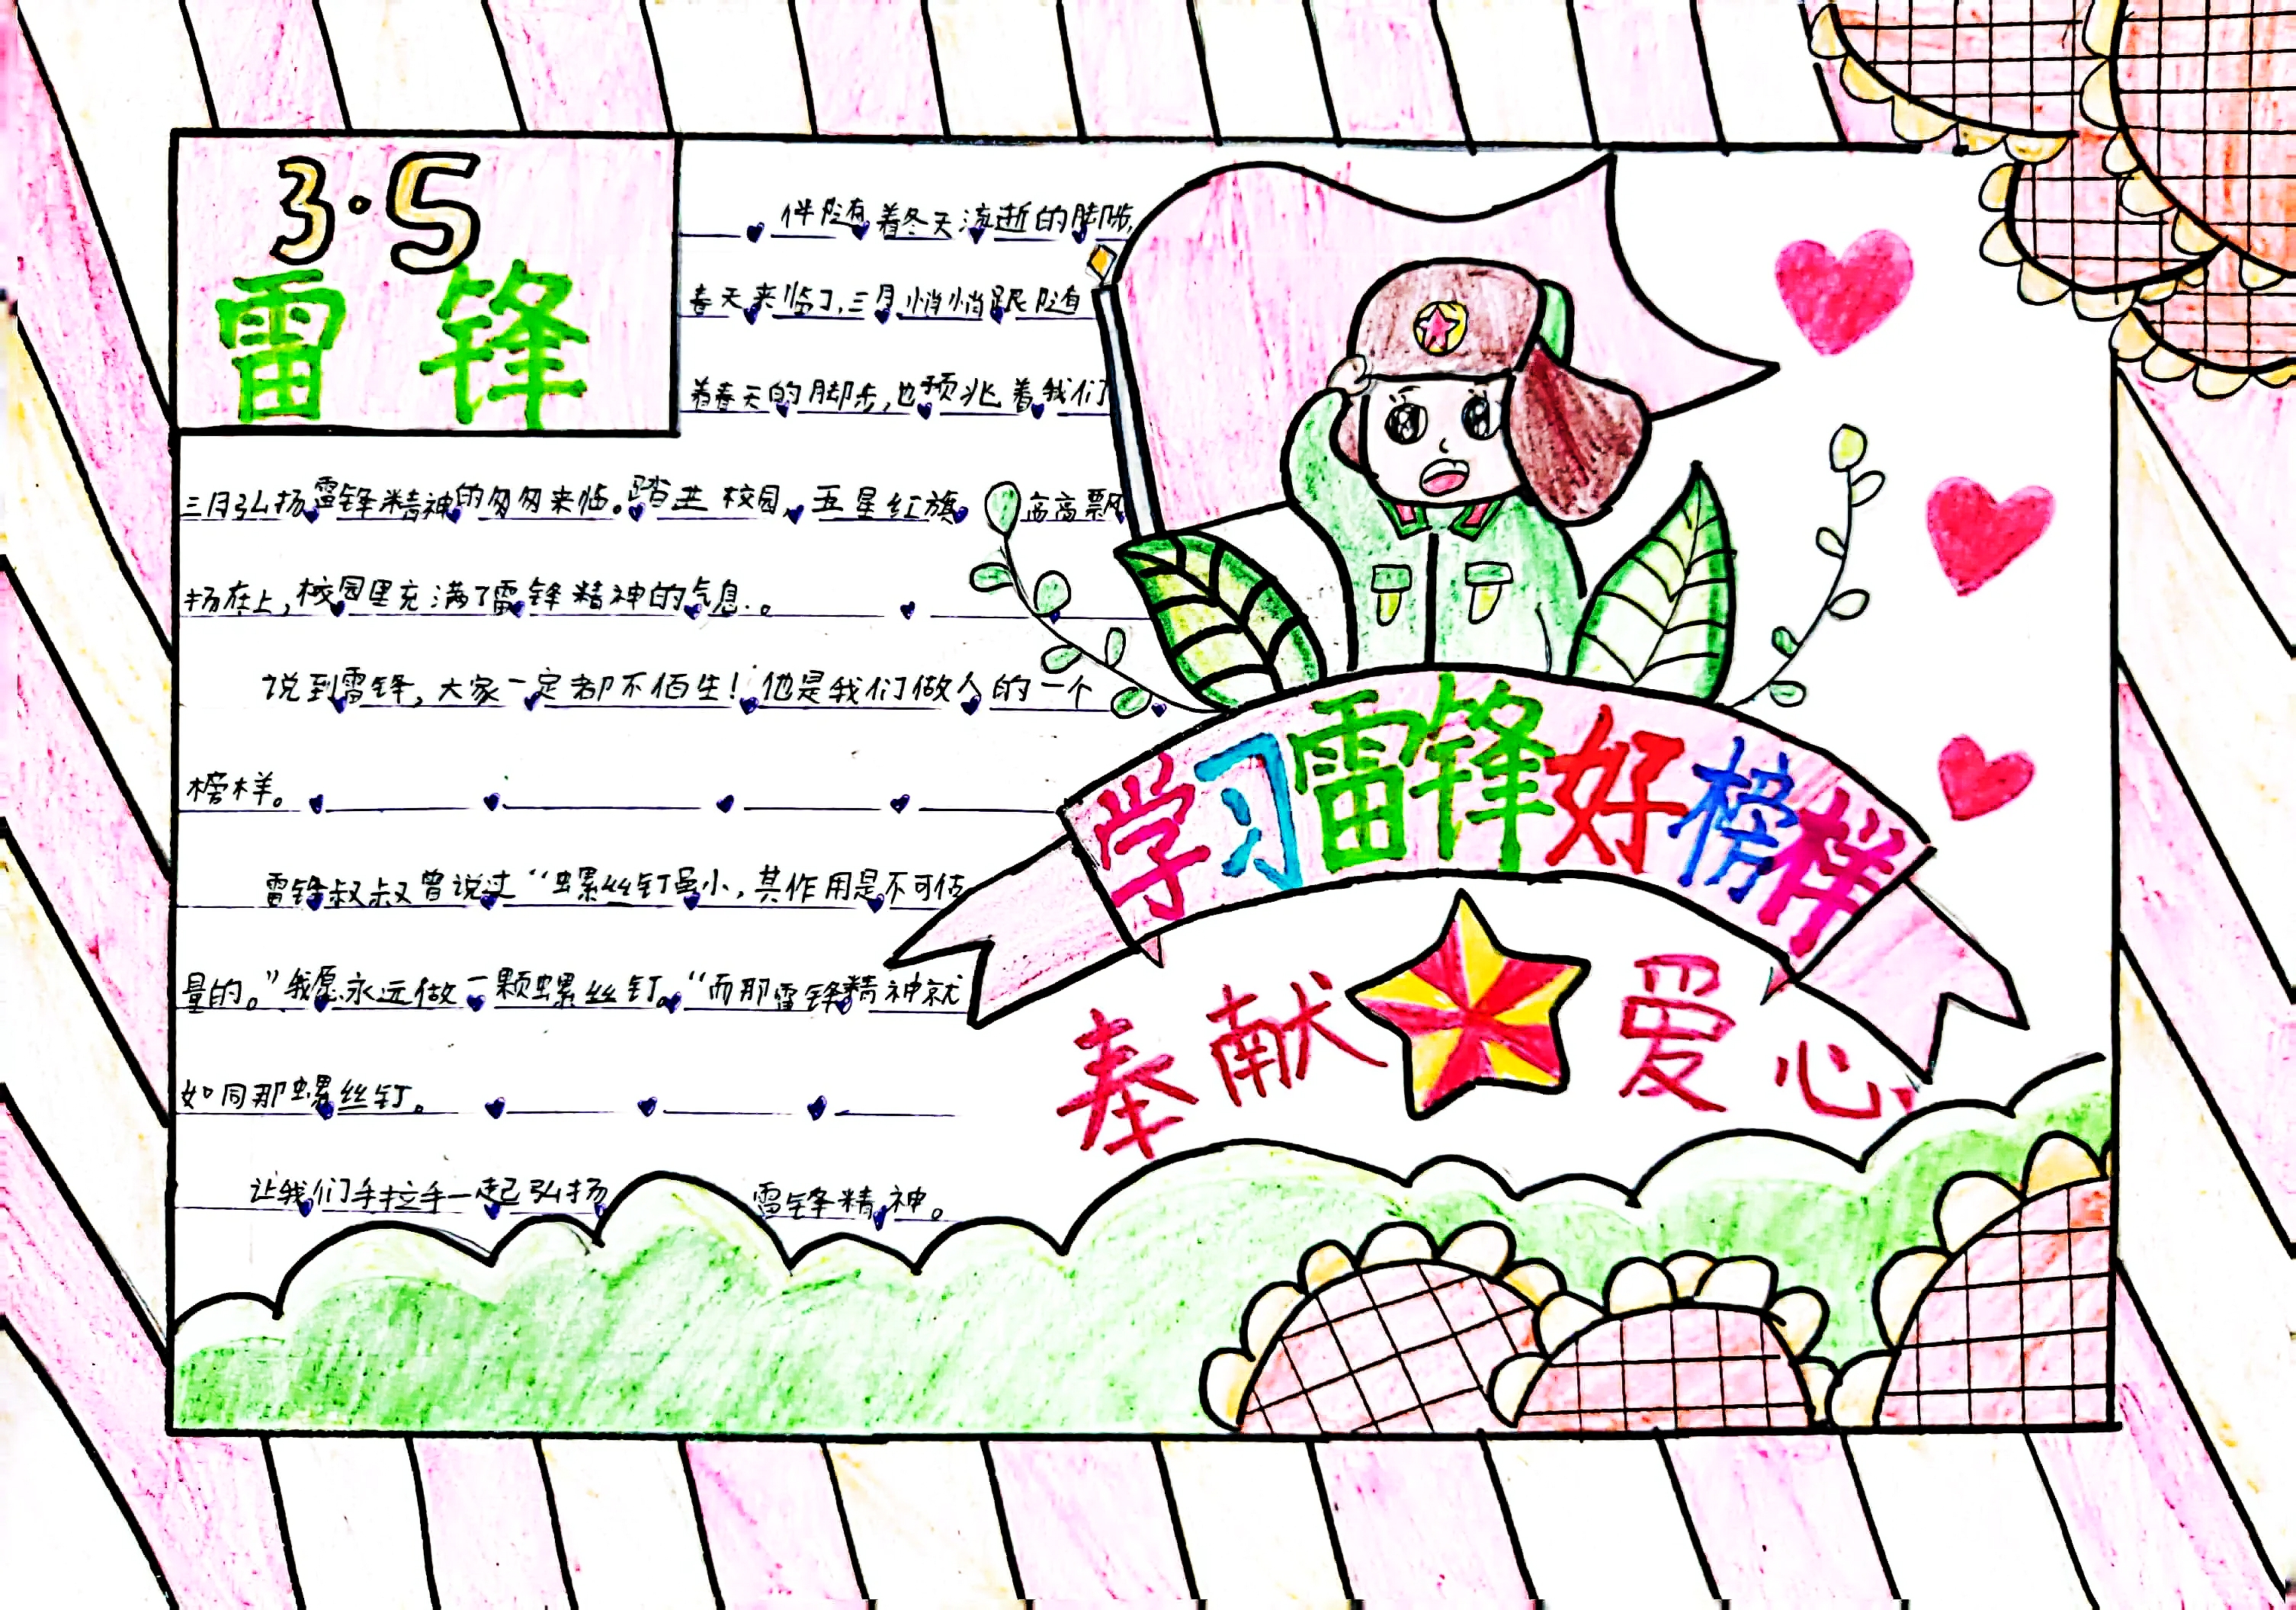 3·5
雷锋
伴随着冬天流逝的脚步,
春天来临了,三月悄悄跟随
着春天的脚步,也预兆着我们
三月弘扬雷锋精神的匆匆来临。踏进校园,五星红旗高高飘
扬在上,校园里充满了雷锋精神的气息.。
说到雷锋,大家一定都不佰生!他是我们做人的一个
榜样。
雷锋叔叔曾说过“螺丝钉虽小,其作用是不可估
量的。”我愿永远做一颗螺丝钉。“而那雷锋精神就
如同那螺丝钉。
让我们手拉手一起弘扬 雷锋精神。
学习雷锋好榜样
奉献 爱心